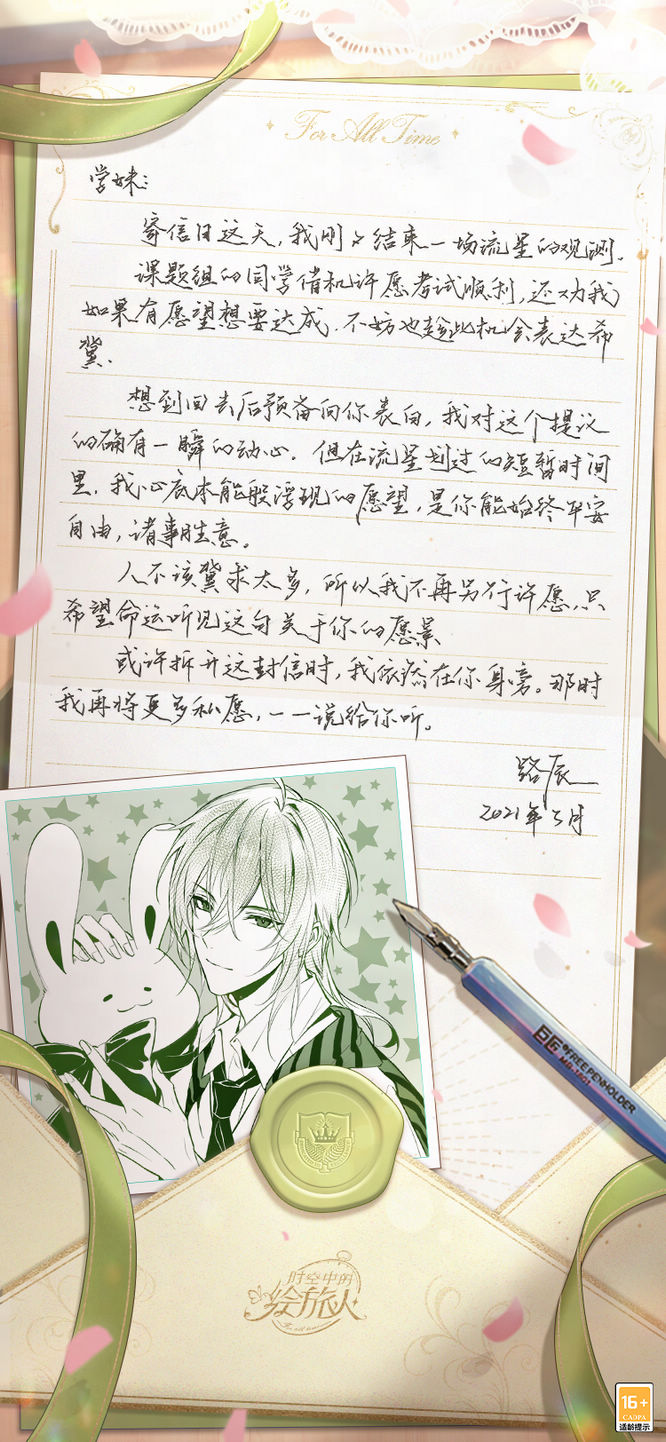 For All Time
学妹：
寄信日这天，我刚刚结束一场流星的观测。
课题组的同学借机许愿考试顺利，还劝我
如果有愿望想要达成，不妨也趁此机会表达希
冀。
想到回去后预备向你表白，我对这个提议
的确有一瞬的动心。但在流星划过的短暂时间
里，我心底本能般浮现的愿望，是你能始终平安
自由，诸事胜意。
人不该冀求太多，所以我不再另行许愿，只
希望命运听见这句关于你的愿景
或许拆开这封信时，我依然在你身旁。那时
我再将更多私愿，一一说给你听。
路辰
2021年5月
巨匠 FREE PENHOLDER
时空中的
绘旅人
For all time
16+
CADPA
适龄提示